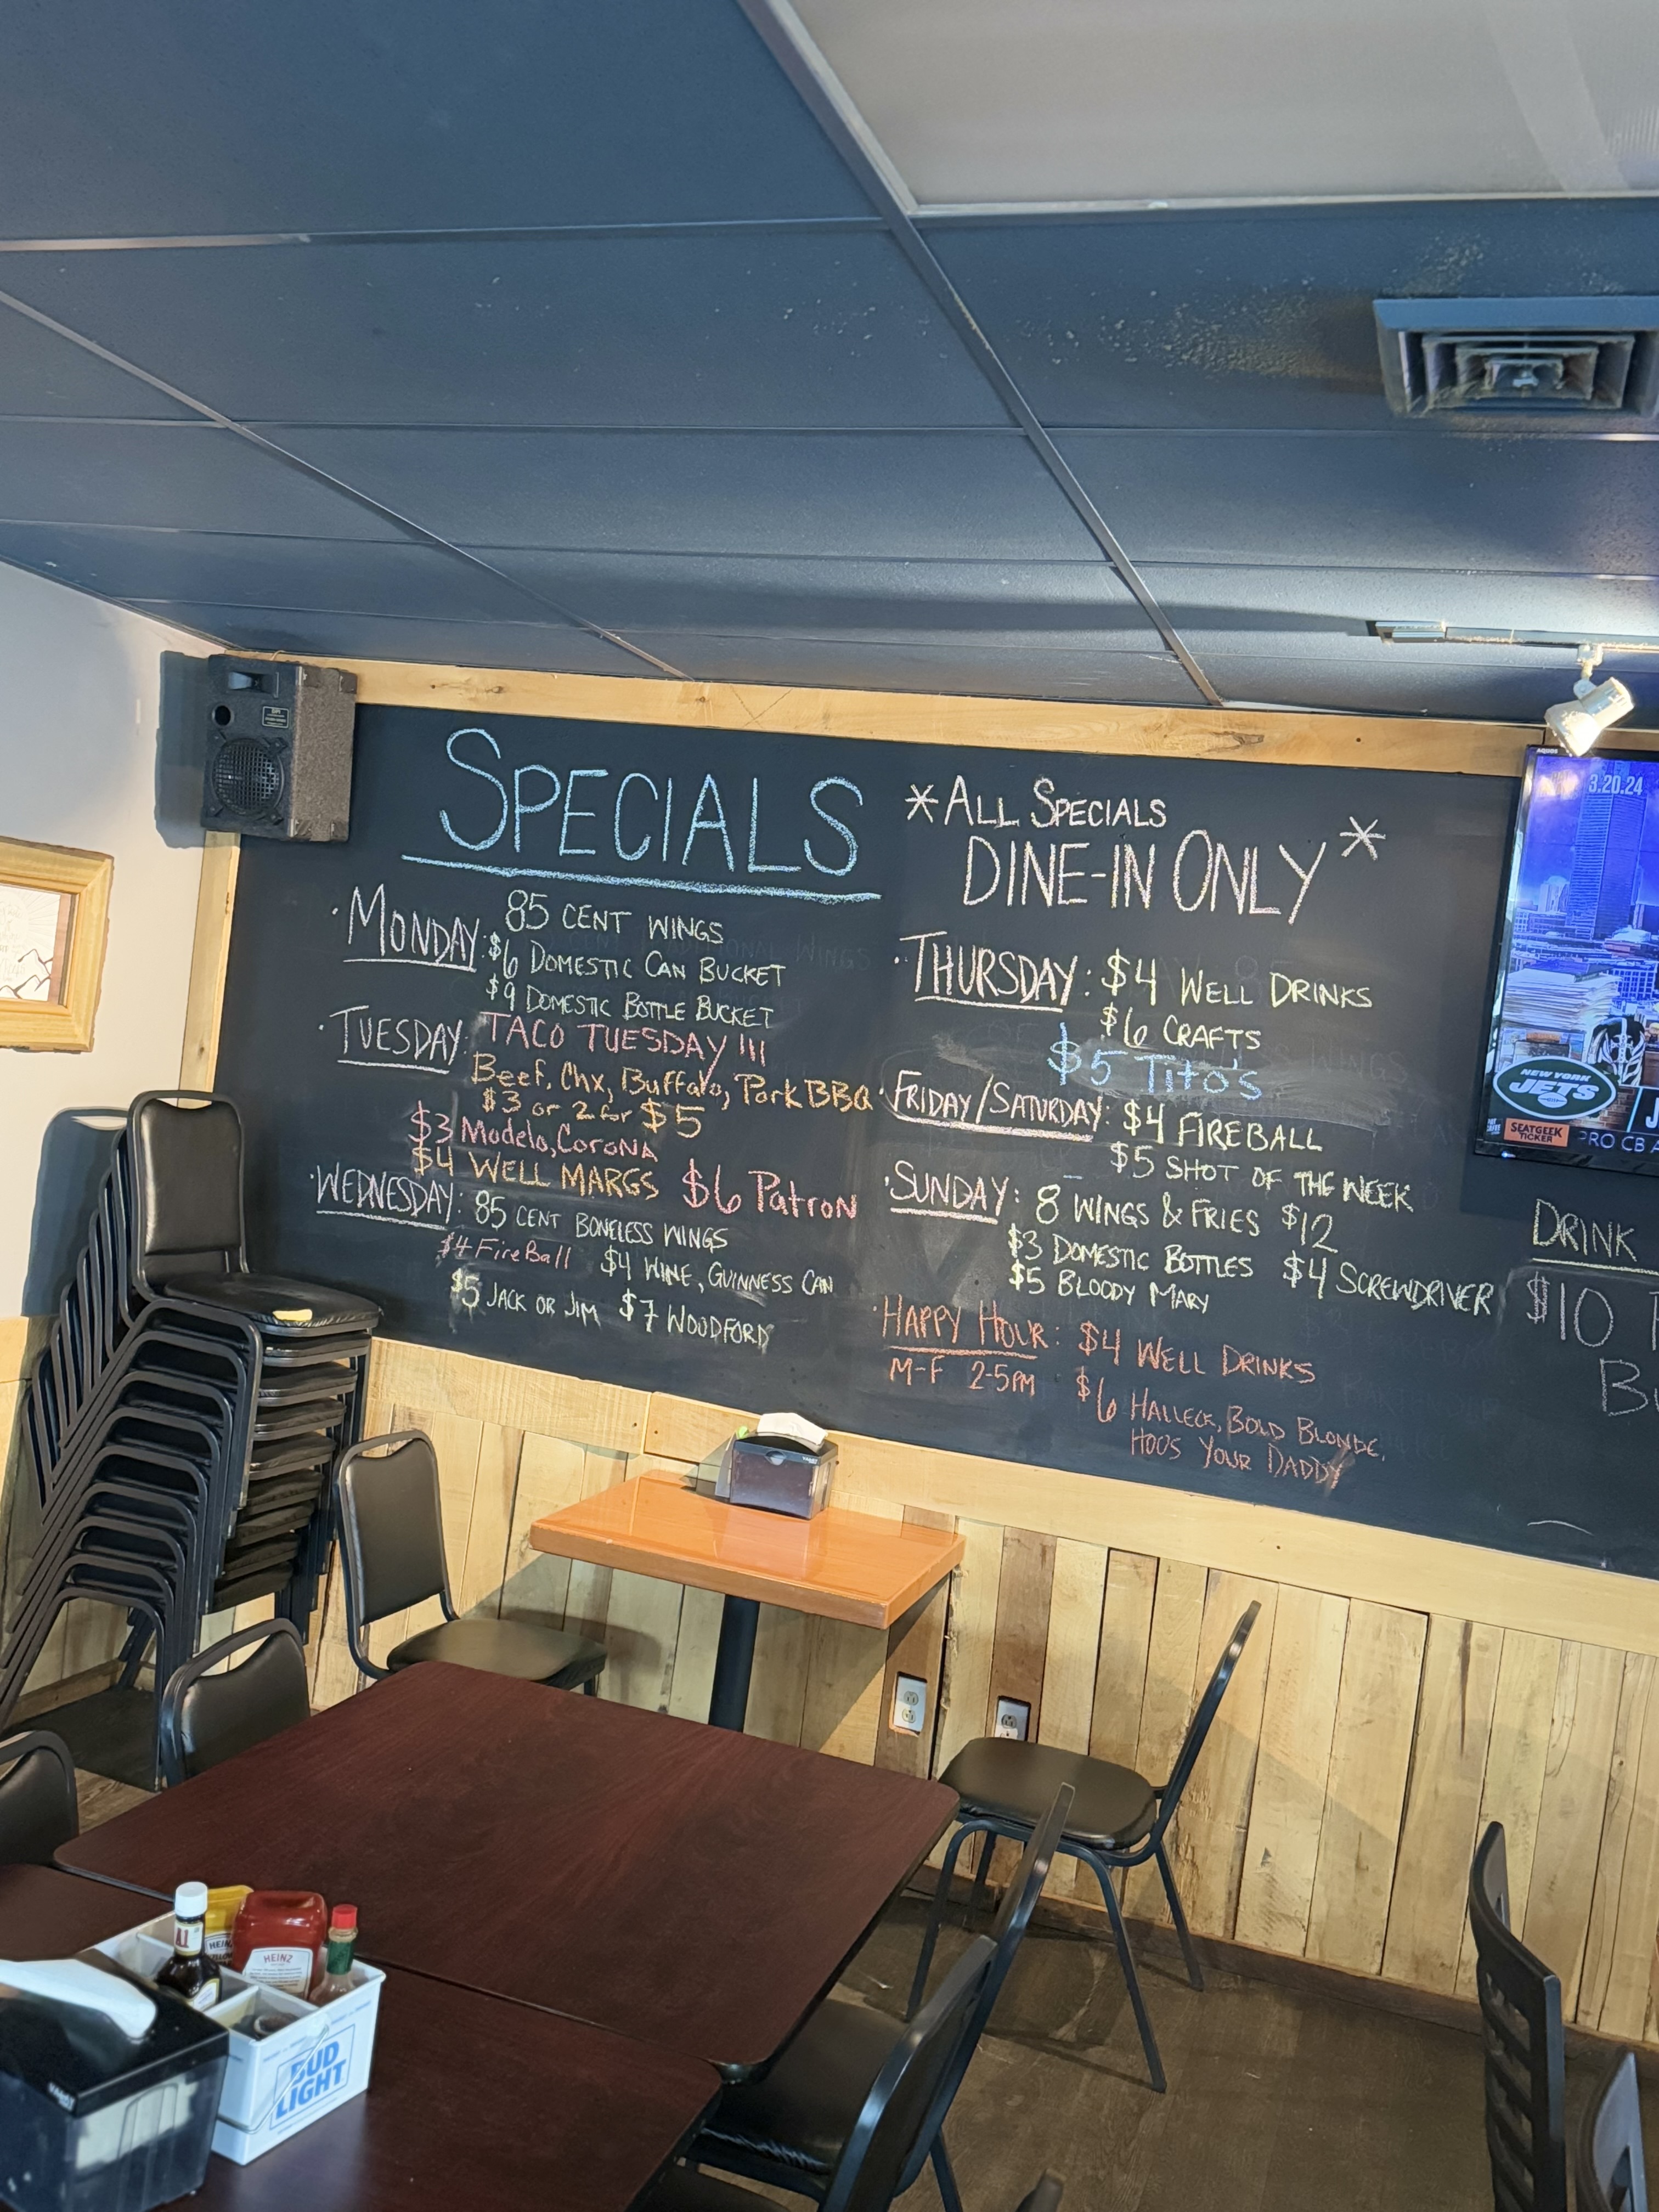 SPECIALS
*ALL SPECIALS
DINE-IN ONLY*
·MONDAY: 85 CENT WINGS
$6 DOMESTIC CAN BUCKET
$9 DOMESTIC BOTTLE BUCKET
·TUESDAY: TACO TUESDAY!!!
Beef, Chx, Buffalo, Pork BBQ
$3 or 2 for $5
$3 Modelo, CoroNA
$4 WELL MARGS $6 Patron
·WEDNESDAY: 85 CENT BONELESS WINGS
$4 FireBall $4 WINE, GUINNESS CAN
$5 JACK OR JIM $7 WOODFORD
·THURSDAY: $4 WELL DRINKS
$6 CRAFTS
$5 Tito's
·FRIDAY/SATURDAY: $4 FIREBALL
$5 SHOT OF THE WEEK
·SUNDAY: 8 WINGS & FRIES $12
$3 DOMESTIC BOTTLES $4 SCREWDRIVER
$5 BLOODY MARY
·HAPPY HOUR: $4 WELL DRINKS
M-F 2-5PM $6 HALLECK, BOLD BLONDE,
HOO'S YOUR DADDY
DRINK
$10
AQUOS
3.20.24
NEW YORK
JETS
SEATGEEK
TICKER
PRO CB
HEINZ
HEINZ
BUD
LIGHT